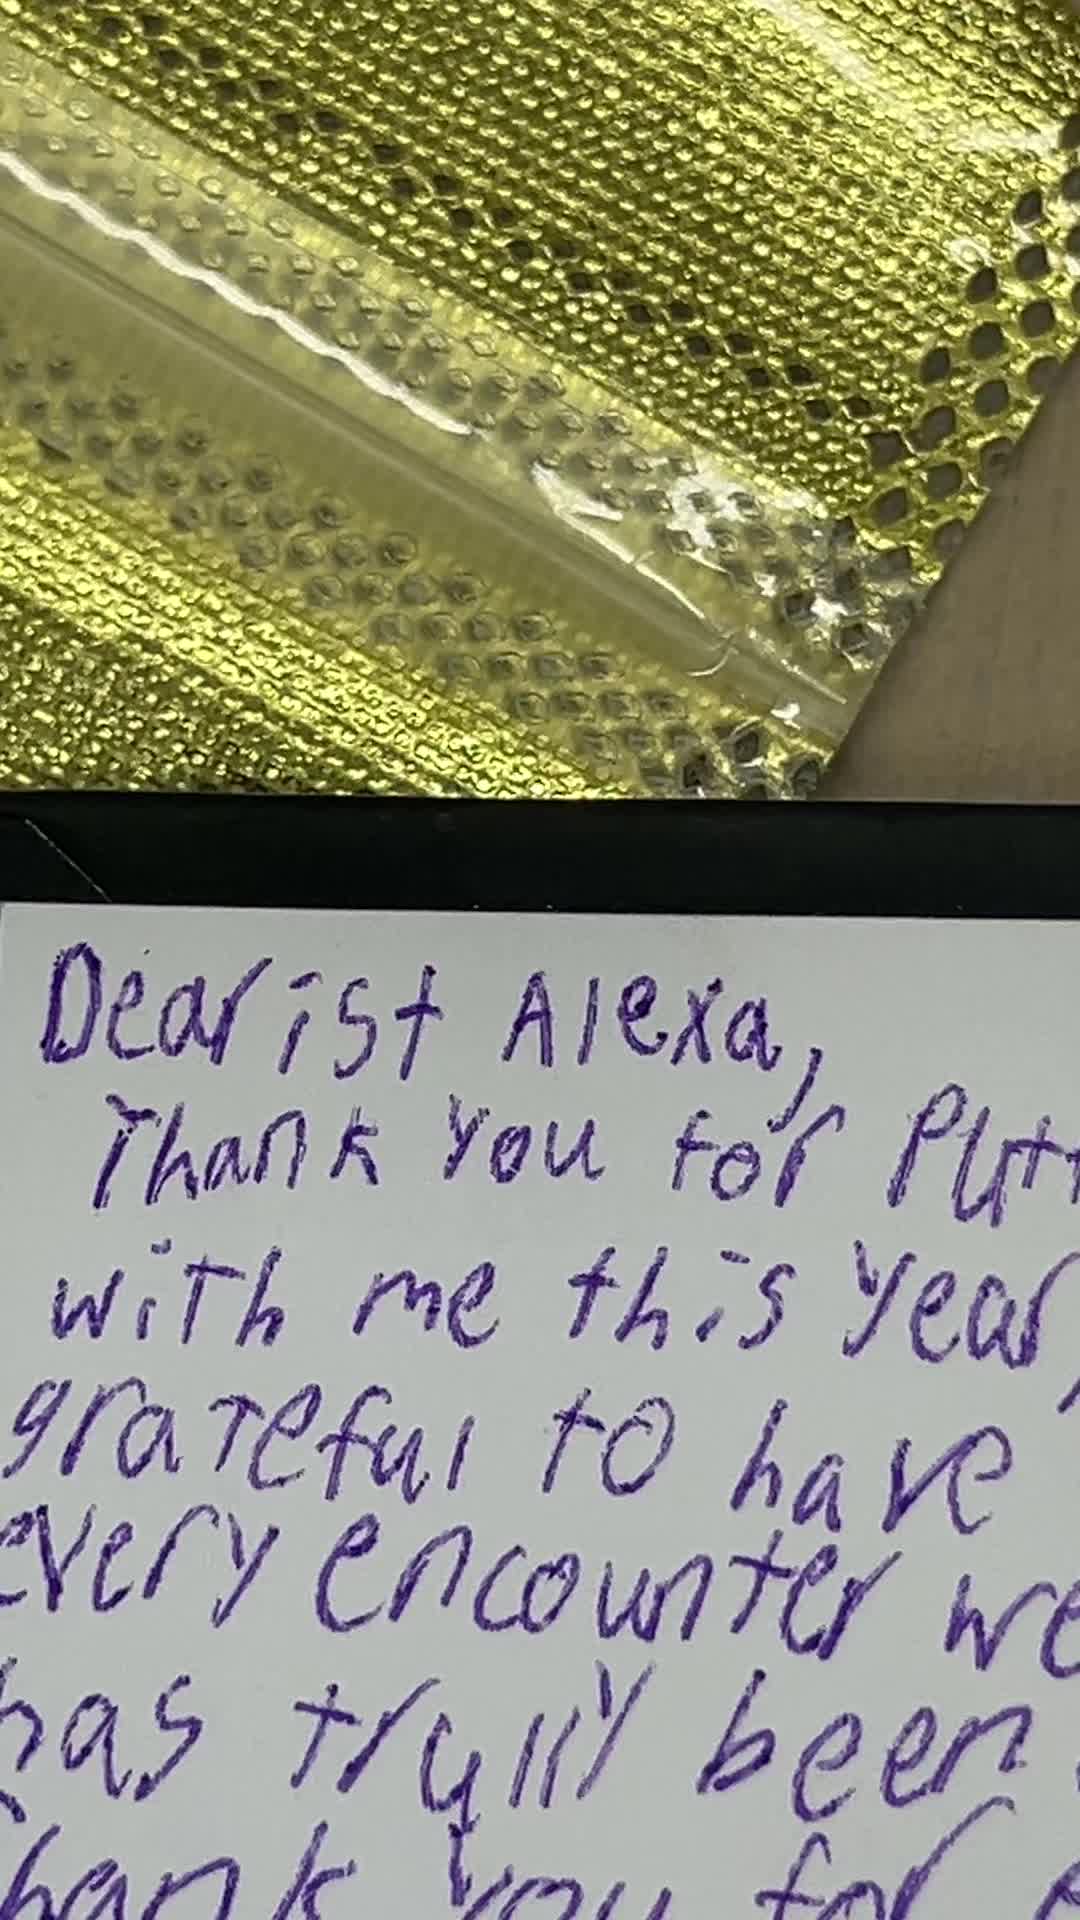 Dearist Alexa,
Thank you for Putt
with me this year,
grateful to have
every encounter we
has trully been
hank you for